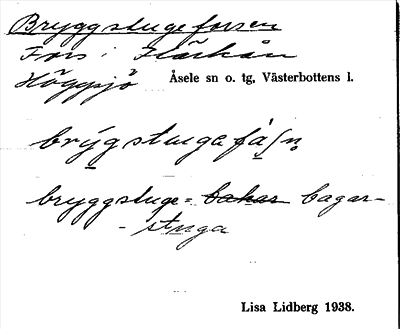 Bryggstugeforsen
Fors i Flärkån
Högsjö Åsele sn o. tg, Västerbottens l.
brýgstuga få
bryggstuge = bakar bagar-
- stuga
Lisa Lidberg 1938.